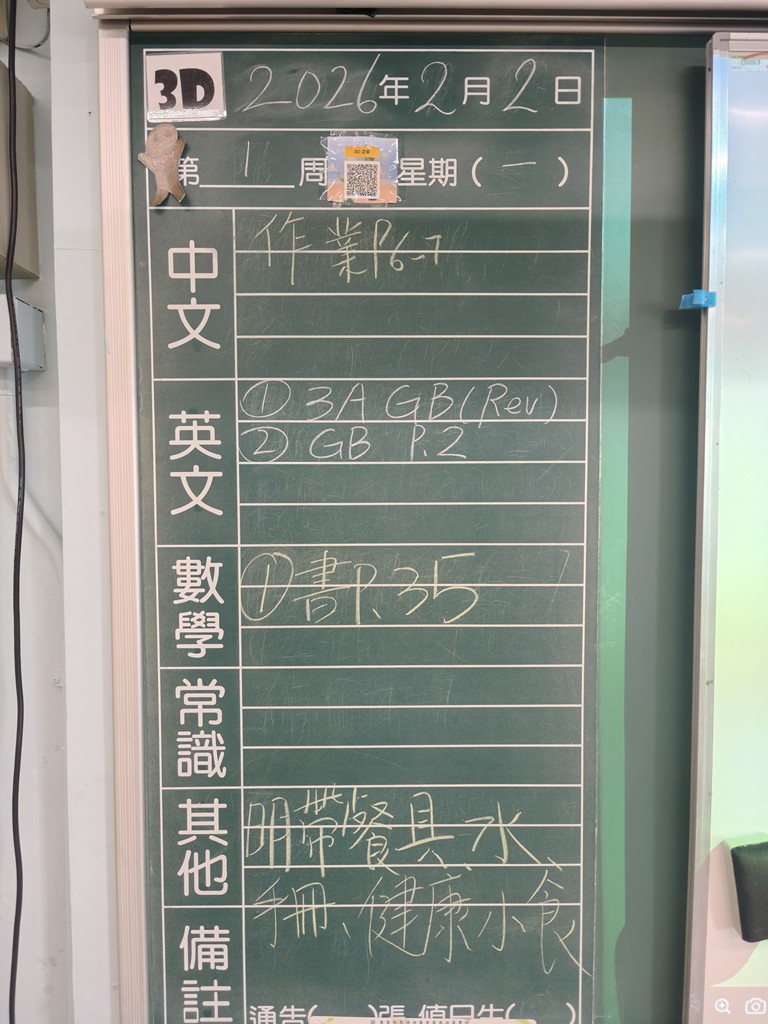 3D 2026年2月2日
第1周 星期(一)
中文
作業P6-7
英文
① 3A GB(Rev)
② GB P.2
數學
①書P.35
常識
其他
明帶餐具、水、
手冊、健康小食
備註
通告( )張 值日生( )